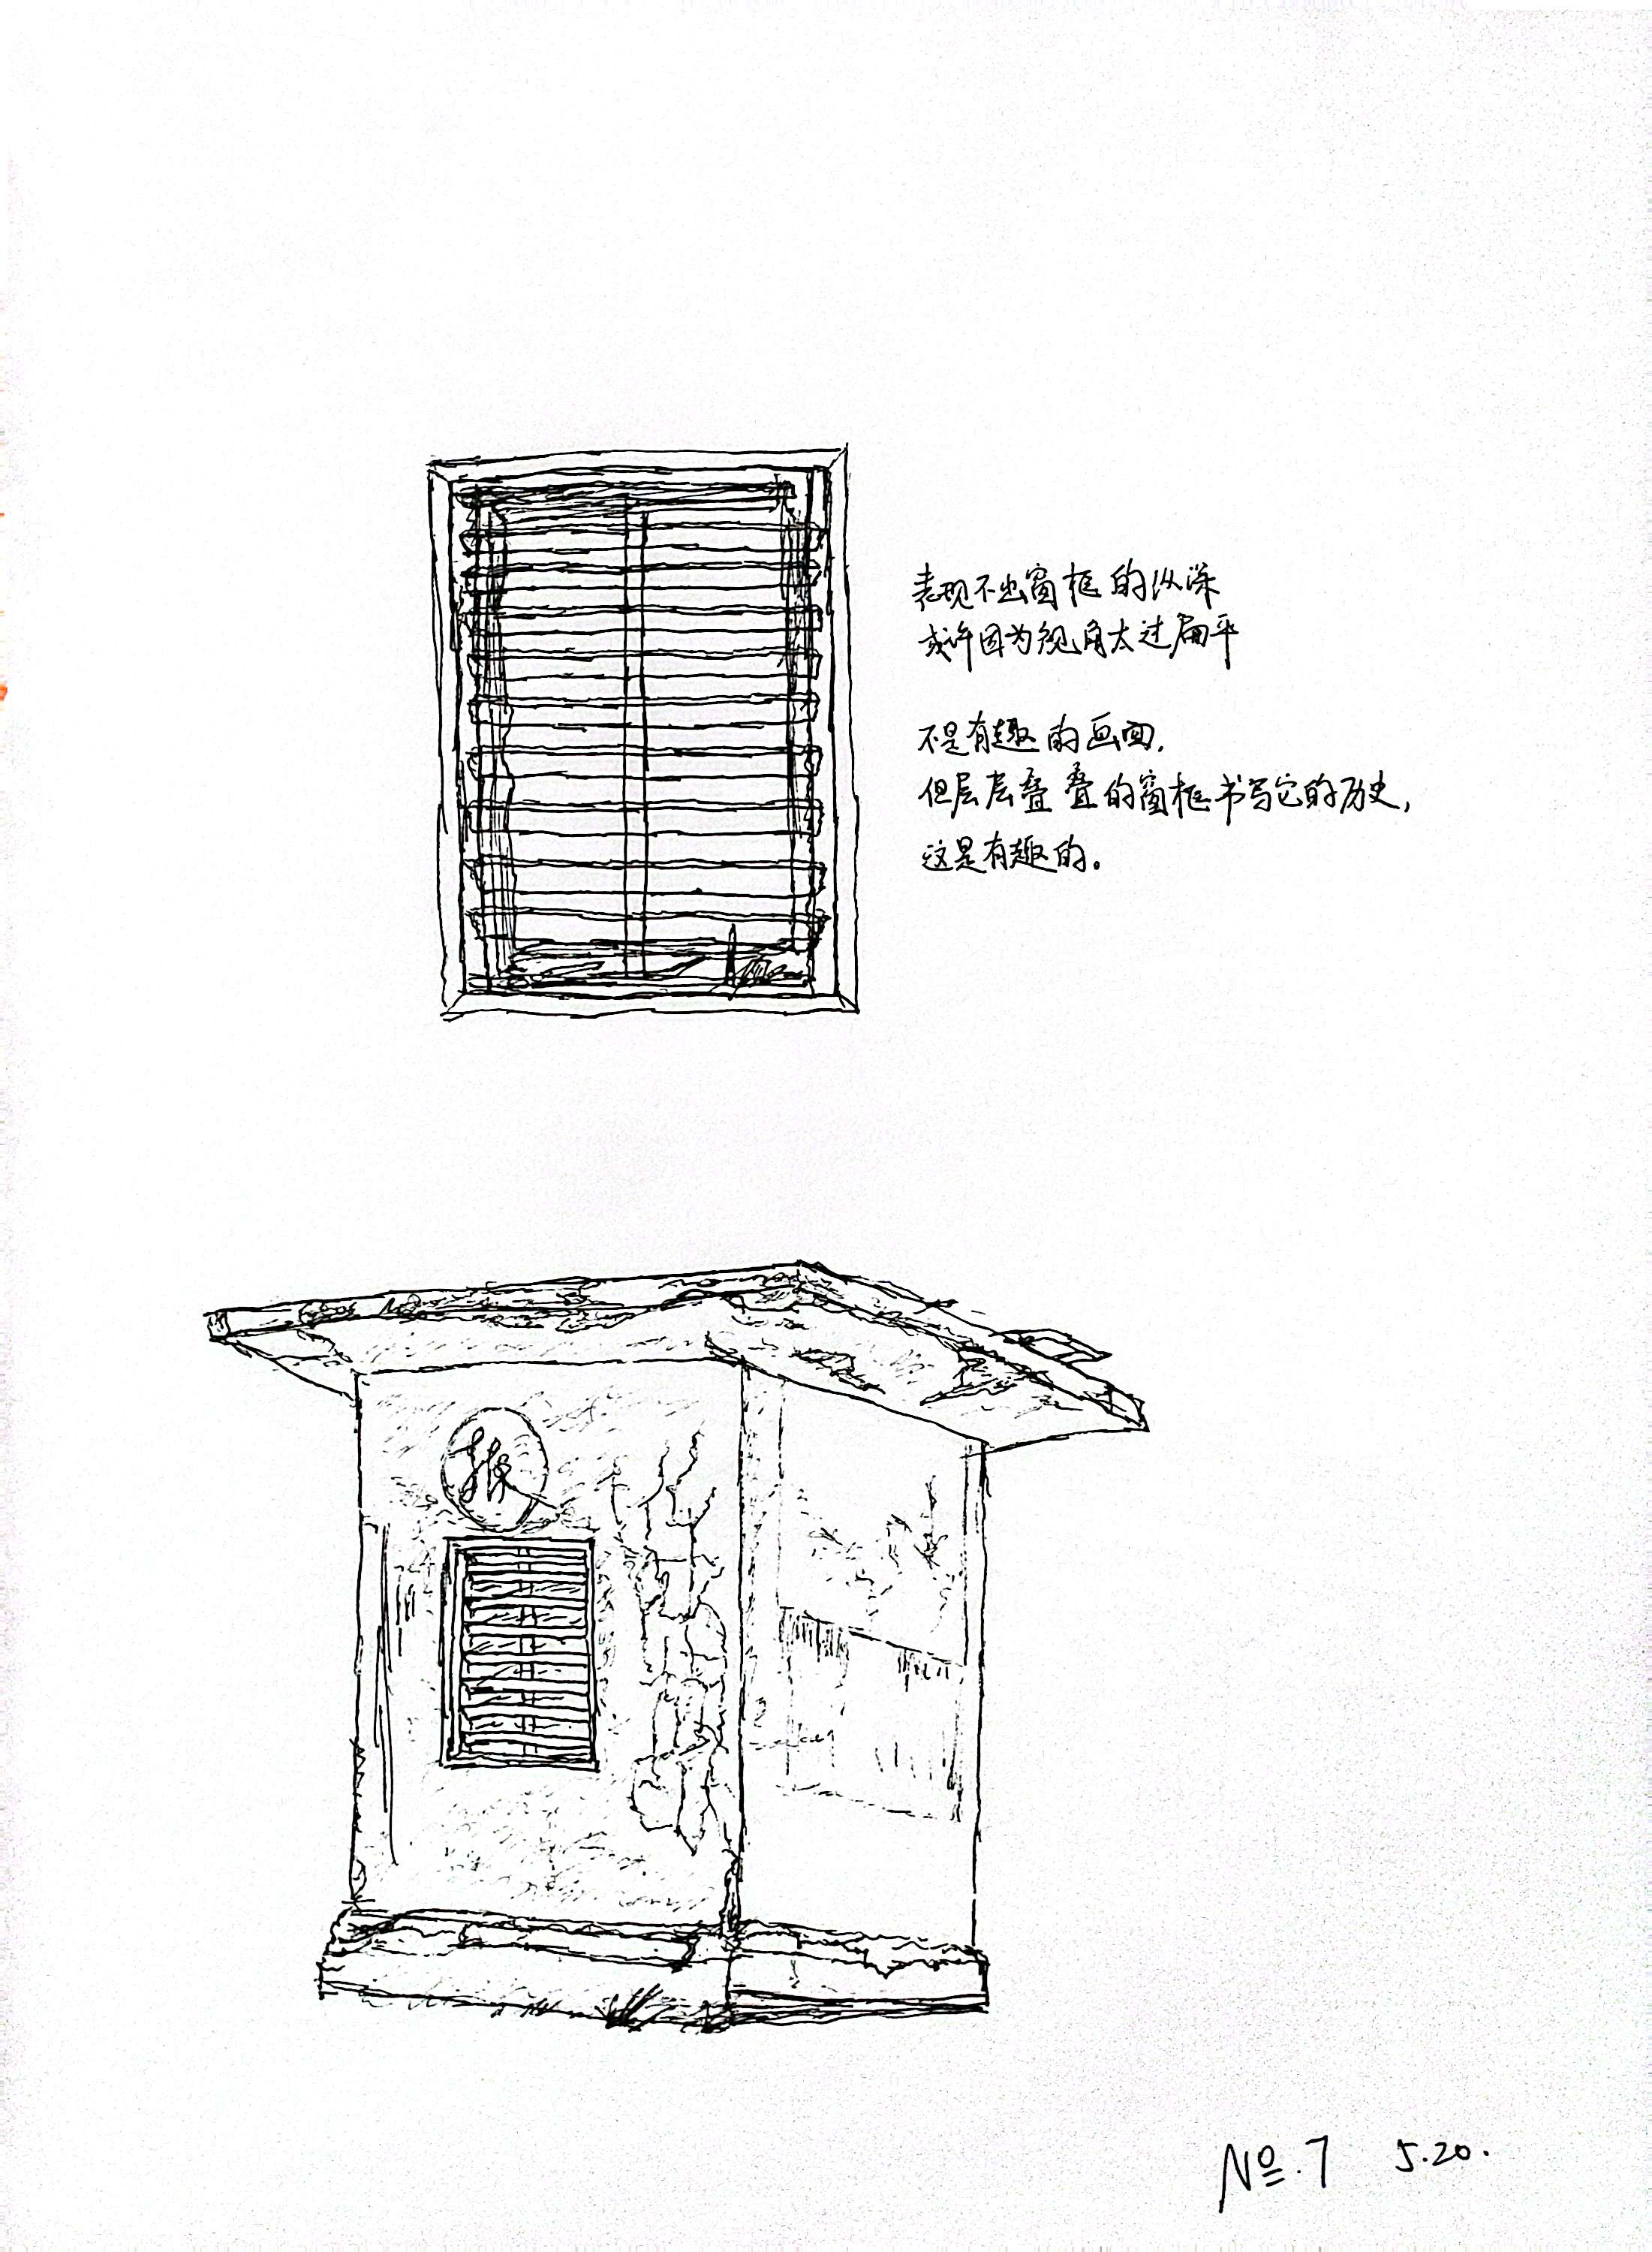 表现不出窗框的纵深
或许因为视角太过扁平
不是有趣的画面,
但层层叠叠的窗框书写它的历史,
这是有趣的。
报
№.7 5.20.